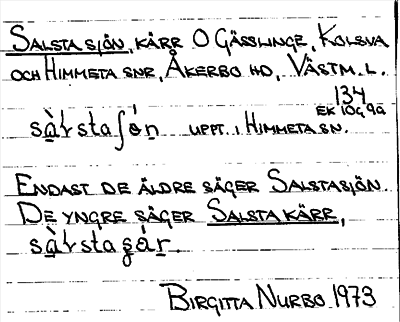 SALSTA SJÖN, KÄRR O GÄSSLINGE, KOLSVA
OCH HIMMETA SNR, ÅKERBO HD, VÄSTM. L.
134
EK 10G 9a
UPPT. I HIMMETA SN.
ENDAST DE ÄLDRE SÄGER SALSTASJÖN.
DE YNGRE SÄGER SALSTA KÄRR,
BIRGITTA NURBO 1973